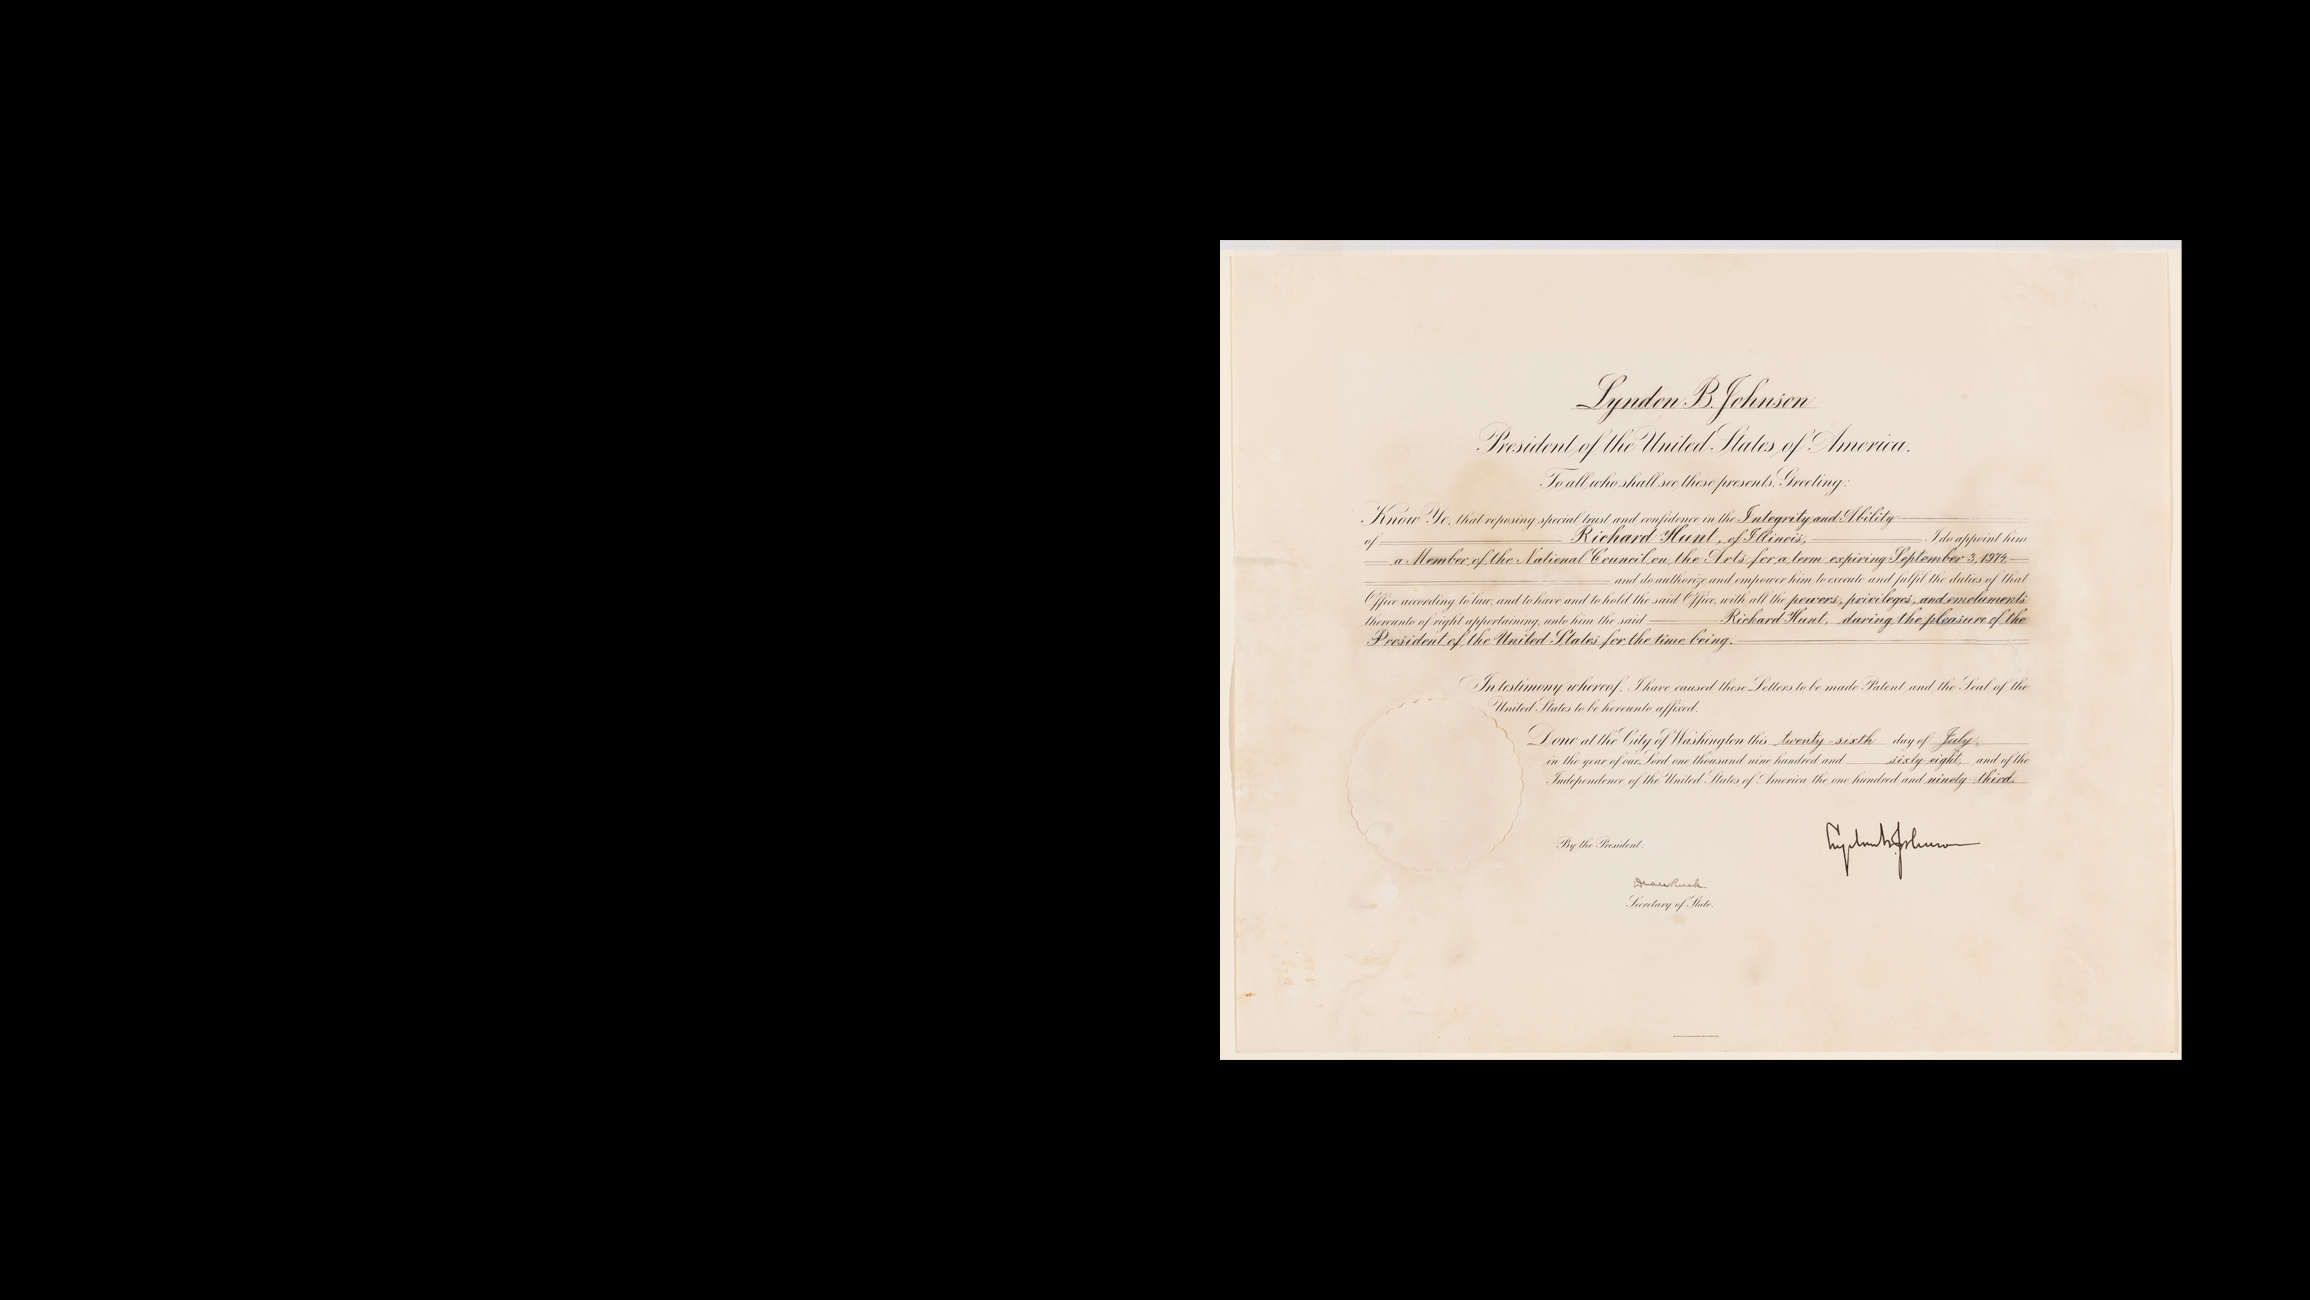 Lyndon B. Johnson
President of the United States of America.
To all who shall see these presents, Greeting:
Know Ye, that reposing special trust and confidence in the Integrity and Ability
of Richard Hunt, of Illinois, I do appoint him
a Member of the National Council on the Arts for a term expiring September 3, 1974
and do authorize and empower him to execute and fulfil the duties of that
Office according to law, and to have and to hold the said Office, with all the powers, privileges, and emoluments
thereunto of right appertaining, unto him the said Richard Hunt, during the pleasure of the
President of the United States for the time being.
In testimony whereof, I have caused these Letters to be made Patent and the Seal of the
United States to be hereunto affixed.
Done at the City of Washington this twenty-sixth day of July
in the year of our Lord one thousand nine hundred and sixty-eight, and of the
Independence of the United States of America the one hundred and ninety-third.
Lyndon B. Johnson
By the President:
Dean Rusk
Secretary of State.